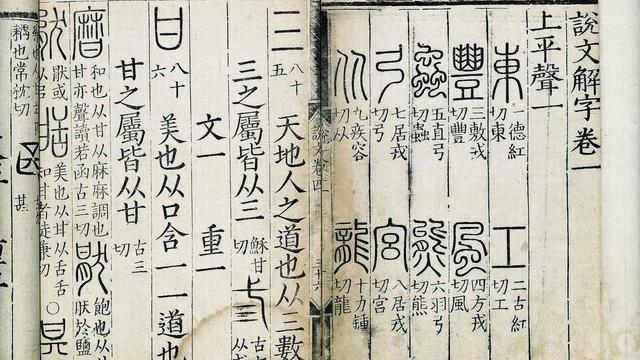 說文解字卷一
上平聲一
東 德紅切東 工 二古紅切工
豐 三敷戎切豐 風 四方戎切風
蟲 五直弓切蟲 熊 六羽弓切熊
弓 七居戎切弓 宮 八居戎切宮
从 九疾容切从 龍 十力鍾切龍
三 八十五 天地人之道也从三數
三之屬皆从三 穌甘切
文一 重一
甘 八十六 美也从口含一一道也
甘之屬皆从甘 古三切
和也从甘从麻麻調也甘亦聲讀若函古三切 猒 飽也从甘从肰於鹽
猒或从 甛 美也从甘从舌舌知甘者徒兼切 ○
耦也常枕切 甚